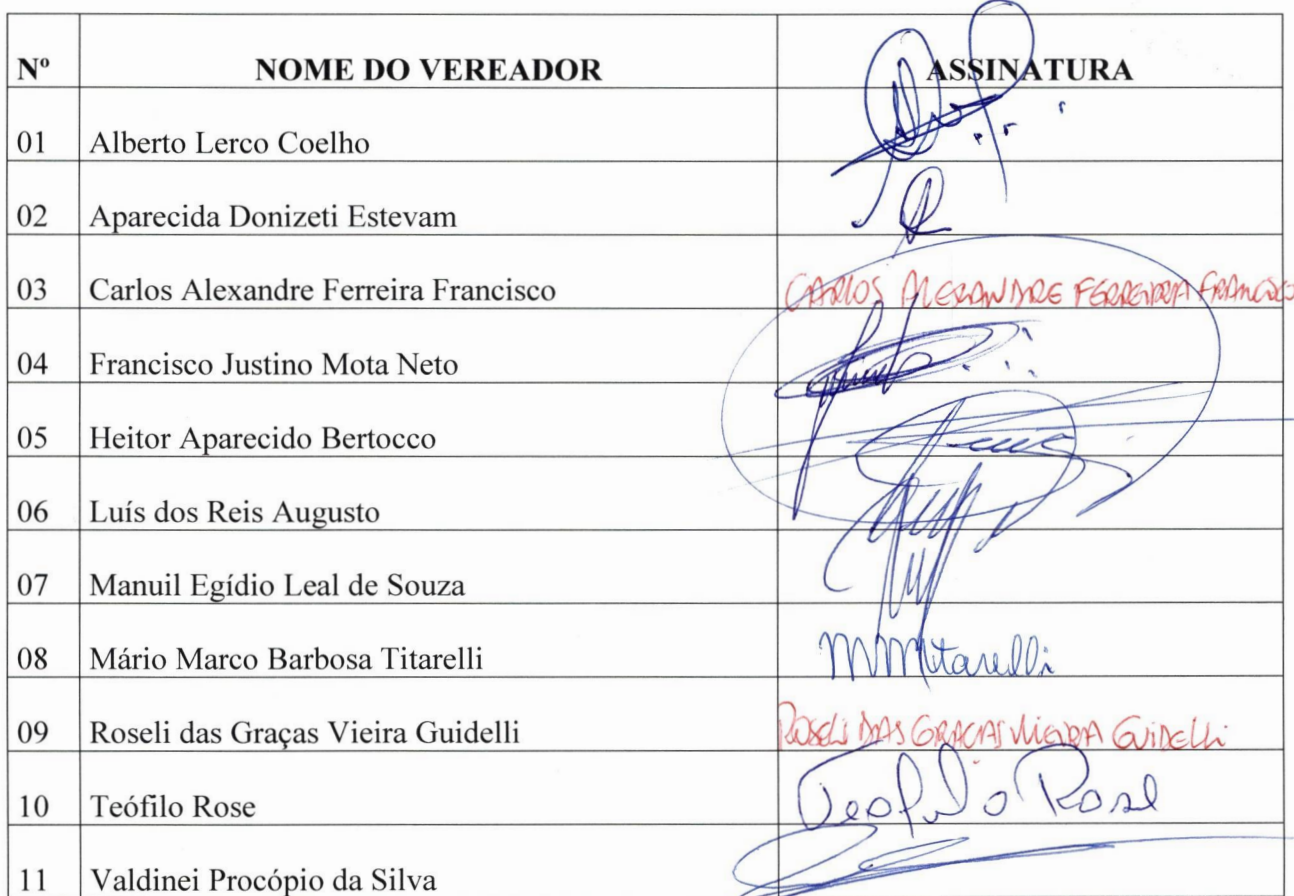 Nº NOME DO VEREADOR ASSINATURA
01 Alberto Lerco Coelho
02 Aparecida Donizeti Estevam
03 Carlos Alexandre Ferreira Francisco CARLOS ALEXANDRE FERREIRA FRANCISCO
04 Francisco Justino Mota Neto
05 Heitor Aparecido Bertocco
06 Luís dos Reis Augusto
07 Manuil Egídio Leal de Souza
08 Mário Marco Barbosa Titarelli MMtitarelli
09 Roseli das Graças Vieira Guidelli ROSELI DAS GRACAS VIEIRA GUIDELLI
10 Teófilo Rose Teofilo Rose
11 Valdinei Procópio da Silva